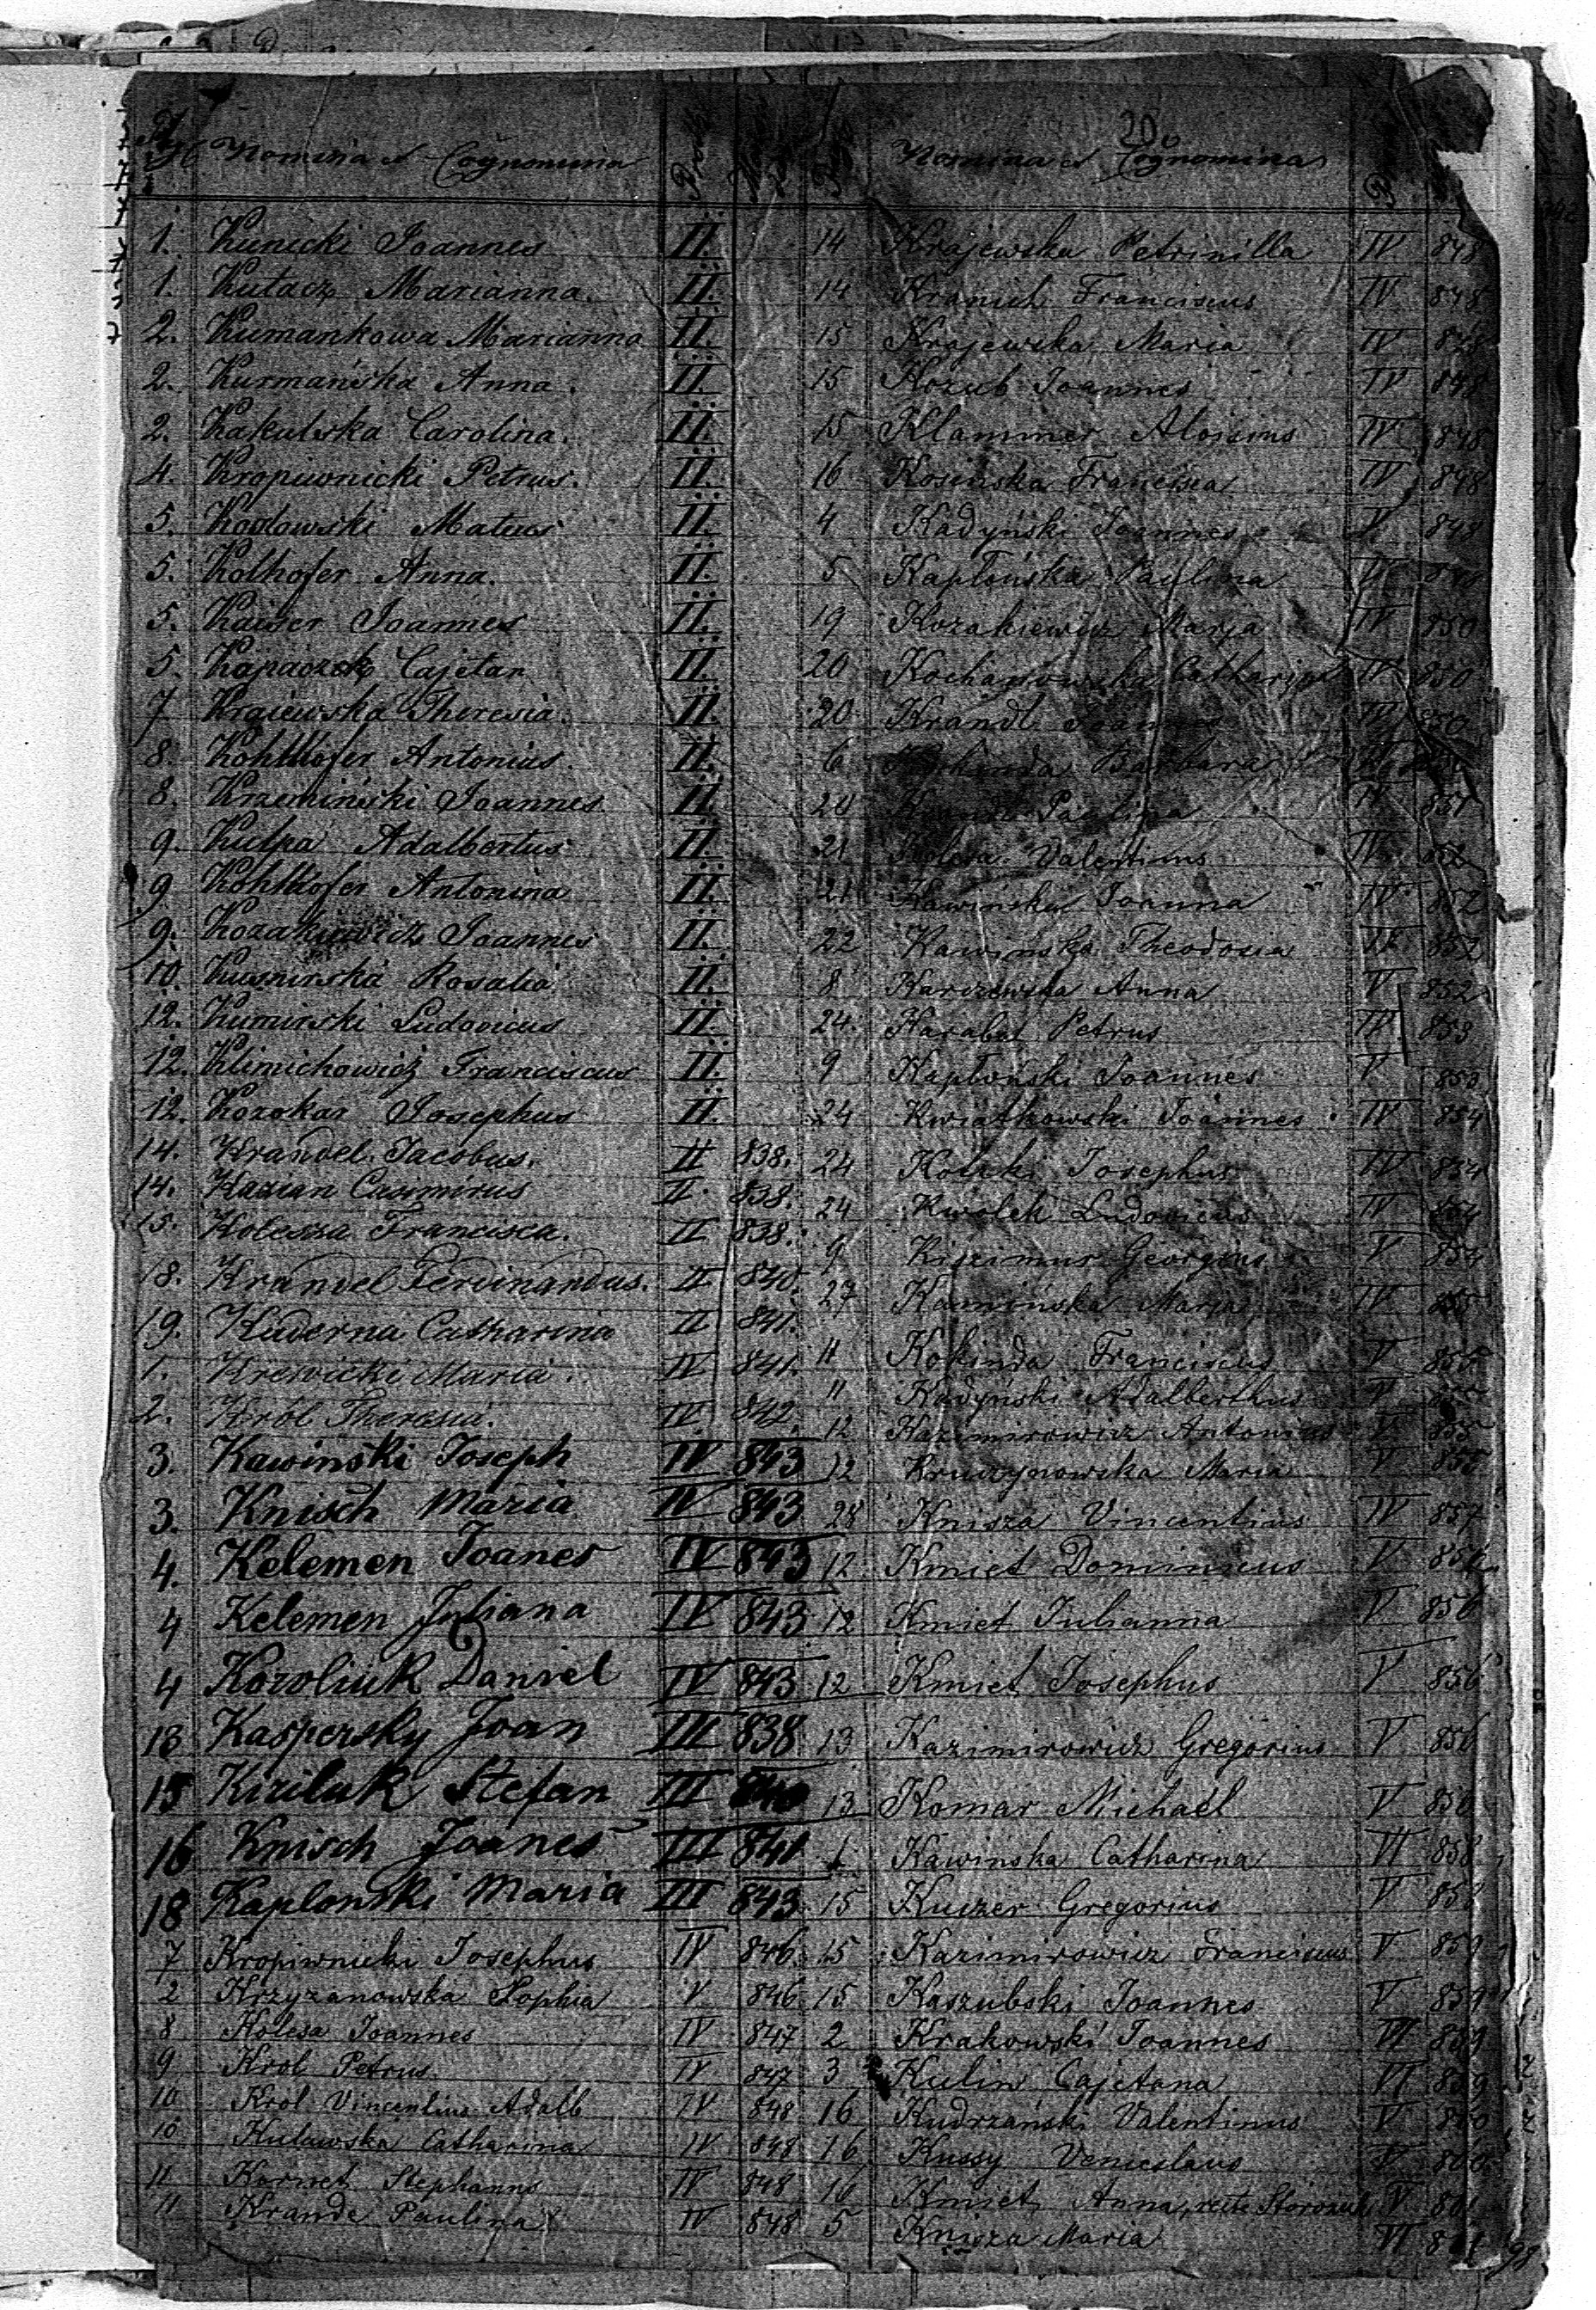 Nomina et Cognomina
1. Kunicki Joannes II.
1. Kutacz Marianna. II.
2. Kumankowa Marianna II.
2. Kurmańska Anna. II.
2. Kakulska Carolina. II.
4. Kropiwnicki Petrus. II.
5. Kozłowski Mateus II.
5. Kolhofer Anna. II.
5. Kaiser Joannes II.
5. Kapaczek Cajetan II.
7 Kraiewska Theresia. II.
8. Kohlhofer Antonius. II.
8. Krzemiński Joannes II.
9. Kulpa Adalbertus II.
9 Kohlhofer Antonina II.
9. Kozakiewicz Joannes II.
10. Rosalia II.
12. Kumirski Ludovicus II.
12. Klimichowicz Franciscus II.
12. Kozokar Josephus II.
14. Krandel Jacobus. II 838.
14. Kazian Casimirus II. 838.
15. Kolessa Francisca. II 838.
18. Krandel Ferdinandus. II 840.
19. Kuderna Catharina II 841.
1. Krewicki Maria. IV 841.
2. Król Theresia. IV 842
3. Kawinski Joseph IV 843
3. Knisch Maria IV 843
4. Kelemen Joanes IV 843
4 Kelemen Juliana IV 843
4 Kozoliuk Daniel IV 843
13 Kaspersky Joan III 838
15 Kiriluk Stefan III 840
16 Knisch Joanes III 841
18 Kaplonski Maria III 843
7 Kropiwnicki Josephus IV 846
2 Krzyzanowska Sophia V 846
8 Kolesa Joannes IV 847
9 Krol Petrus IV 847
10 Krol Vincentius Adalb IV 848
10 Kulawska Catharina IV 848
11 Kornet Stephanus IV 848
11 Krande Paulina IV 848
20
Nomina et Cognomina
14 Krajewska Petrinilla IV 848
14 Kranich Franciscus IV 848
15 Krajewska Maria IV 848
15 Kozub Joannes IV 848
15 Klammer Aloisius IV 848
16 Kosinska Francisca IV 848
4 Kadyński Joannes V 848
5 Kaplońska Paulina
19 Kozakiewicz Marja IV 850
20 Kochanowska Catharina IV 850
20 Krandl IV 850
6 Kokinda Barbara
20 Paulina IV 851
21 Kolesa Valentinus IV 852
21 Kawinska Joanna IV 852
22 Kawinska Theodosia IV 852
8 Karczewska Anna V 852
24 Karabel Petrus IV 853
9 Kaploński Joannes V 853
24 Kwiatkowski Joannes IV 854
24 Kolecki Josephus IV 854
24 Kwolek Ludovicus IV 854
9 Georgius V 854
27 Kaminska Maria IV 855
11 Kokinda Franciscus V 855
11 Kadyński Adalberthus V 855
12 Kazimirowicz Antonius V 855
12 Kruczynowska Maria V 855
28 Knisza Vincentius IV 857
12 Kmiet Dominicus V 856
12 Kmiet Julianna V 856
12 Kmiet Josephus V 856
13 Kazimirowicz Gregorius V 856
13 Komar Michael V 856
1 Kawinska Catharina VI 858
15 Kuczer Gregorius V 858
15 Kazimirowicz Franciscus V 859
15 Kaszubski Joannes V 859
2 Krakowski Joannes VI 859
3 Kulin Cajetana VI 859
16 Kudrzański Valentinus V 860
16 Kussy Venceslaus V 860
16 Kmiet Anna, recte V 861
5 Knisza Maria VI 861